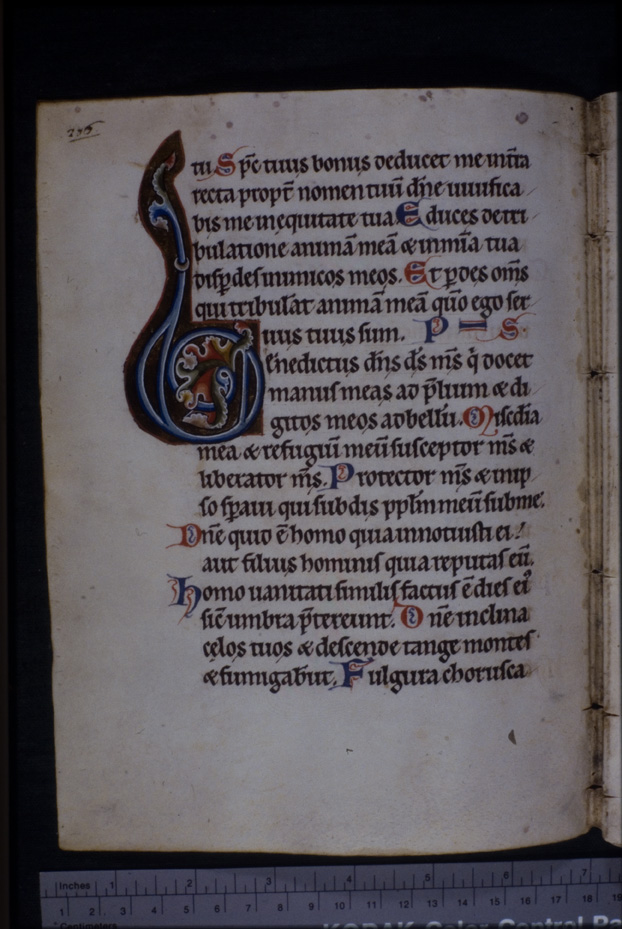 tu. Sp̄c tuus bonus deducet me in t̄ra
recta propt̄ nomen tuū dn̄e uiuifica
bis me in equitate tua. Educes de tri
bulatione animā meā & in mīa tua
disꝑdes inimicos meos. Et ꝑdes om̄s
qui tribulāt animā meā qūo ego ser
uus tuus sum. P S.
Benedictus dn̄s ds̄ m̄s q̇ docet
manus meas ad p̄lium & di
gitos meos ad bellū. Misc̄dia
mea & refugiū meū susceptor m̄s &
liberator m̄s. Protector m̄s & in ip
so sꝑaui qui subdis ppl̄m meū sub me.
Dn̄e quid ē homo quia innotuisti ei!
aut filius hominis quia reputas eū.
Homo uanitati similis factus ē dies ei'
sic̄ umbra p̄tereunt. Dn̄e inclina
celos tuos & descende tange montes
& fumigabūt. Fulgura chorusca
Inches 1 2 3 4 5 6 7
1 2 3 4 5 6 7 8 9 10 11 12 13 14 15 16 17 18 19
Centimetres
KODAK Color Control Pa